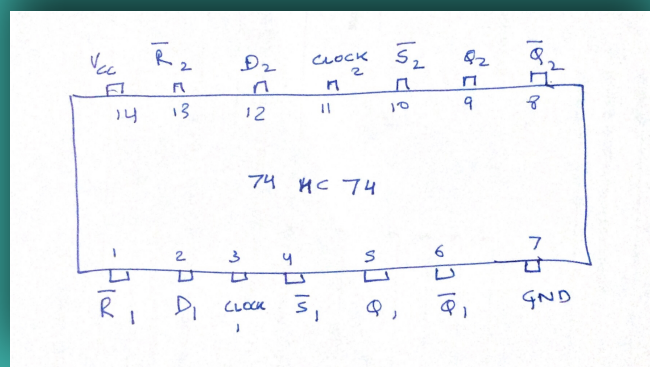 Vcc R̅2 D2 CLOCK 2 S̅2 Q2 Q̅2
14 13 12 11 10 9 8
74 HC 74
1 2 3 4 5 6 7
R̅1 D1 CLOCK 1 S̅1 Q1 Q̅1 GND